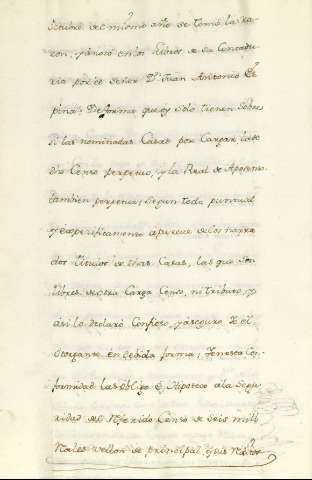 del mismo año se tomó la Ra-
zon, y anotó en los Libros de su Contadu-
ria por el Señor Dn. Juan Antonio Es-
pina; De forma que oy solo tienen sobre
si las nominadas Casas por Cargas la de
dho Censo perpetuo, y la Real de Aposento
tambien perpetua; segun todo puntual
y especificamente aparece de los narra-
dos titulos de dhas Casas, las que son
libres de otra Carga Censo, ni tributo, y
asi lo declaró Confesó, y aseguro el
otorgante en debida forma; y en esta Con-
formidad las obligo e Hipoteco a la Segu-
ridad del Referido Censo de seis mill
Reales vellon de principal, y sus Reditos